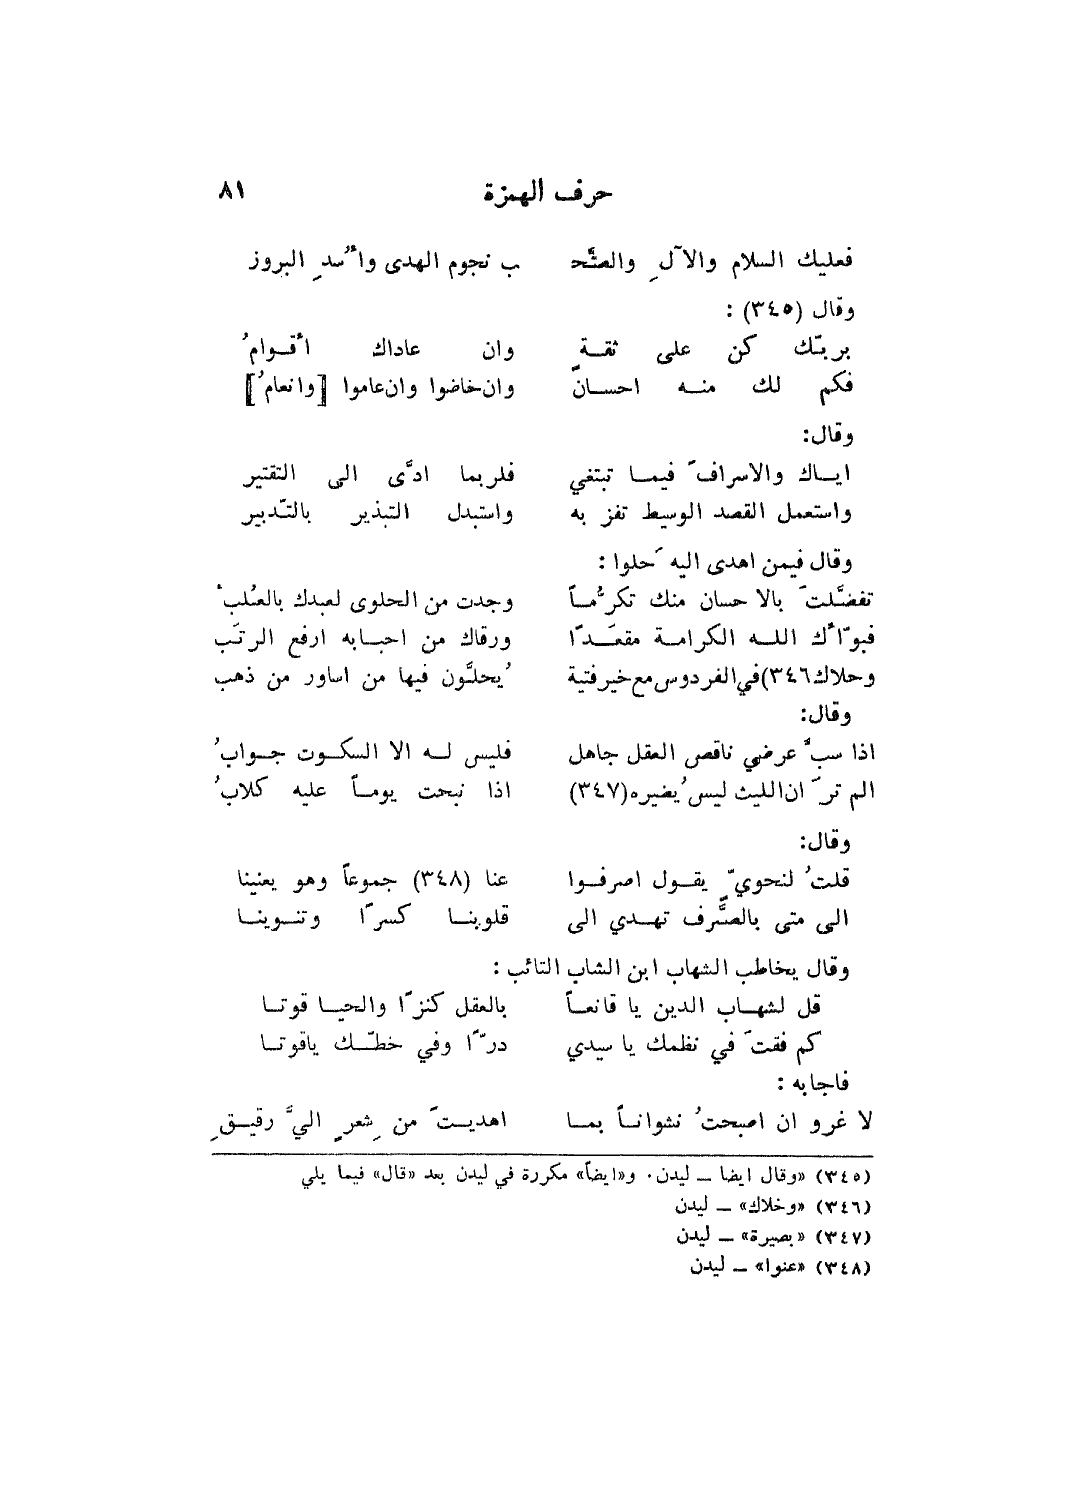 حرف الهمزة ٨١
فعليك السلام والآلِ والصَّحـ ـب نجوم الهدى واُسدِ البروز
وقال (٣٤٥) :
بربّك كن على ثقةٍ وان عاداك أقوامُ
فكم لك منه احسانٌ وان خاضوا وان عاموا [وانعامُ]
وقال:
اياك والاسرافَ فيما تبتغي فلربما ادَّى الى التقتير
واستعمل القصد الوسيط تفز به واستبدل التبذير بالتّدبير
وقال فيمن اهدى اليه حَلوا :
تفضَّلتَ بالاحسان منك تكرُّماً وجدت من الحلوى لعبدك بالعُلبْ
فبوّأك اللـه الكرامة مقعَدًا ورقاك من احبابه ارفع الرتَب
وحلاك ٣٤٦) في الفردوس مع خير فتية يُحلَّون فيها من اساور من ذهب
وقال:
اذا سبَّ عرضي ناقص العقل جاهل فليس له الا السكوت جوابُ
الم ترَ ان الليث ليس يُضيره (٣٤٧) اذا نبحت يوماً عليه كلابُ
وقال:
قلتُ لنحويٍّ يقول اصرفوا عنا (٣٤٨) جموعاً وهو يعنينا
الى متى بالصَّرف تهدي الى قلوبنا كسرًا وتنوينا
وقال يخاطب الشهاب ابن الشاب التائب :
قل لشهاب الدين يا قانعاً بالعقل كنزًا والحيا قوتا
كم فقتَ في نظمك يا سيدي درًّا وفي خطّك ياقوتا
فاجابه :
لا غرو ان اصبحتُ نشواناً بما اهديتَ من شِعرٍ اليَّ رقيقِ
(٣٤٥) «وقال ايضا – ليدن. و«ايضاً» مكررة في ليدن بعد «قال» فيما يلي
(٣٤٦) «وخلاك» – ليدن
(٣٤٧) «بصيرة» – ليدن
(٣٤٨) «عنوا» – ليدن